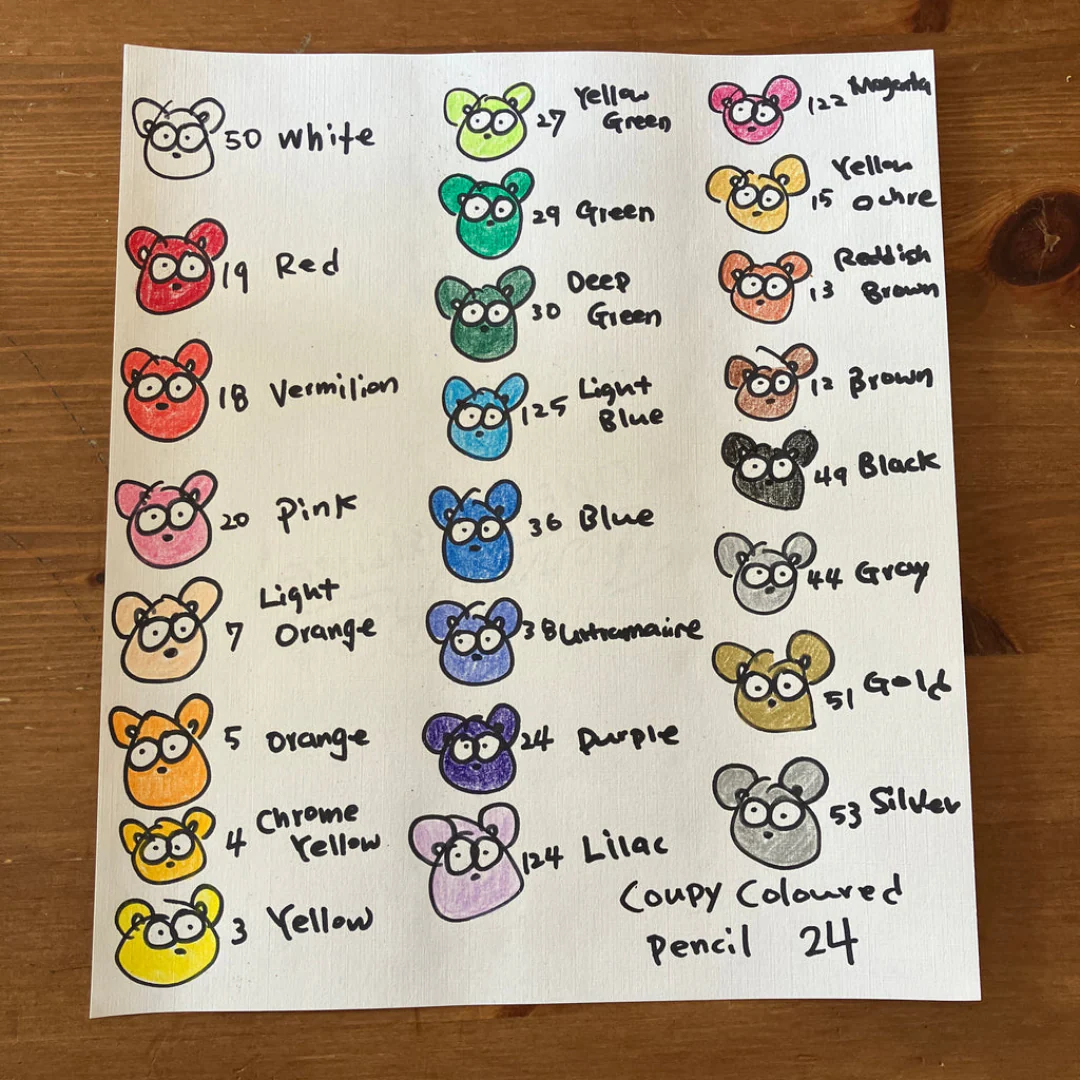 50 White
19 Red
18 Vermilion
20 Pink
Light
7 Orange
5 Orange
Chrome
4 Yellow
3 Yellow
Yellow
27 Green
29 Green
Deep
30 Green
Light
125 Blue
36 Blue
38 Ultramaire
24 Purple
124 Lilac
122 Magenta
Yellow
15 Ochre
Reddish
13 Brown
12 Brown
49 Black
44 Gray
51 Gold
53 Silver
Coupy Coloured
Pencil 24